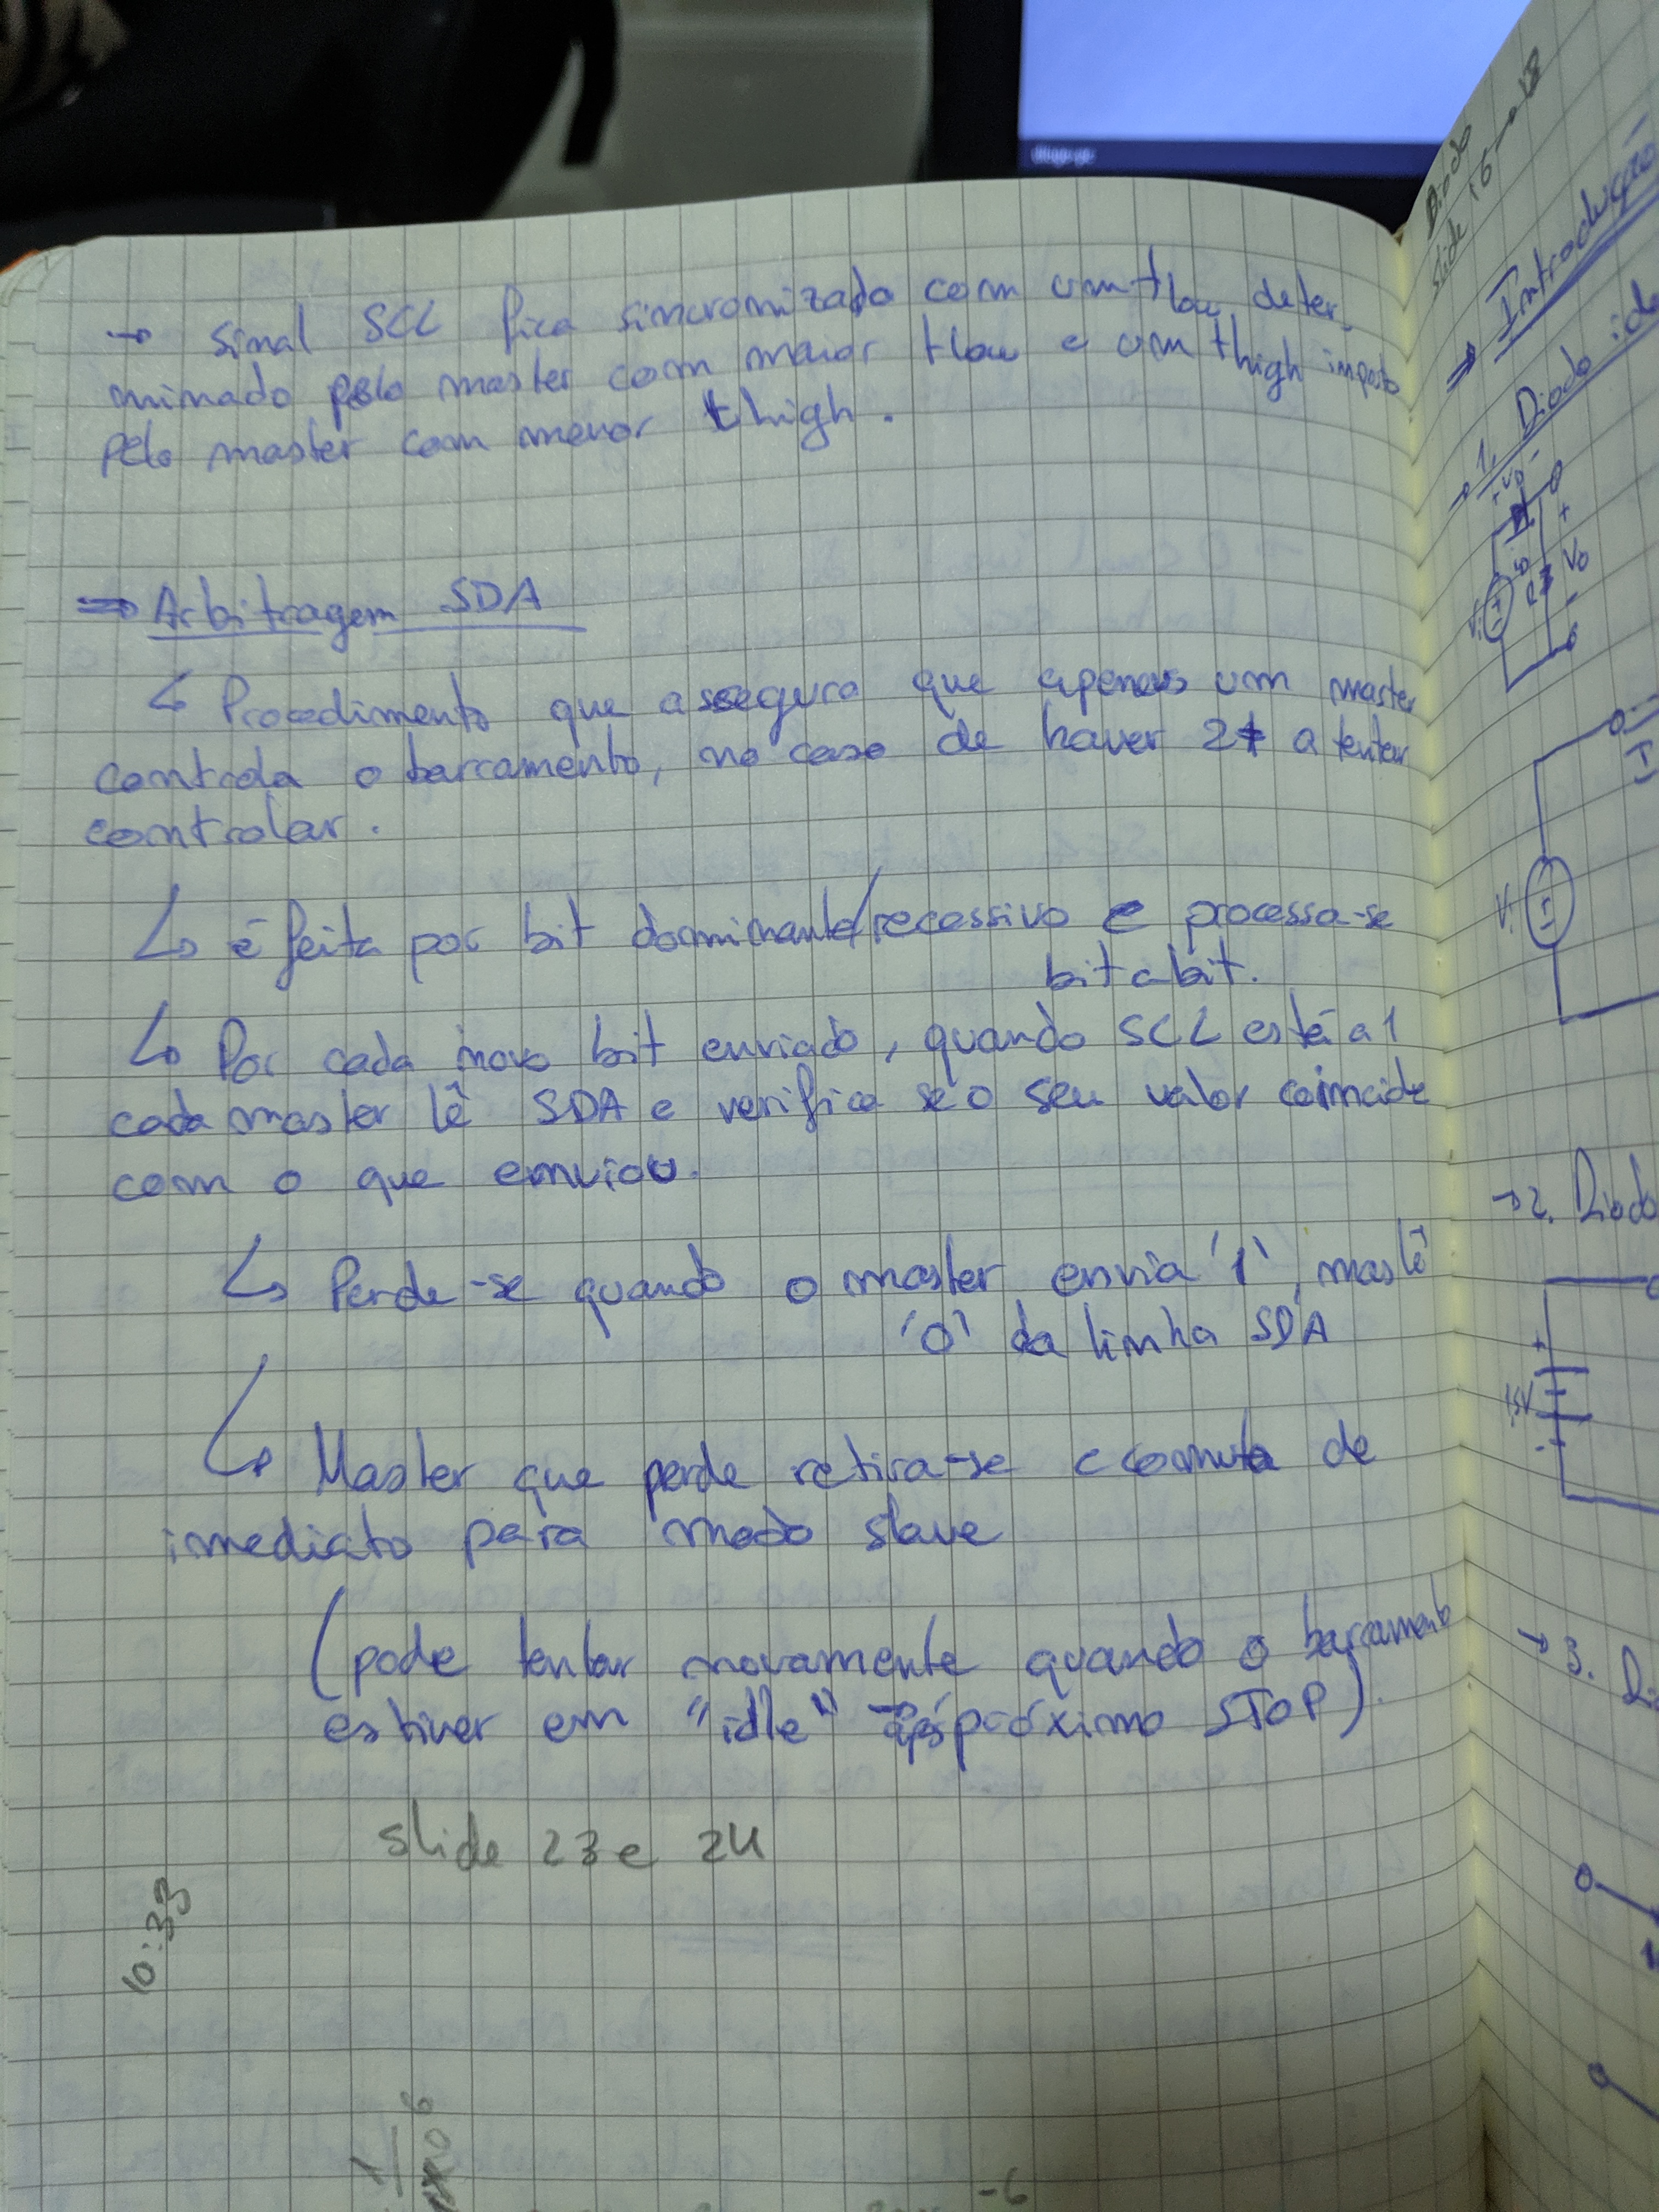 → Sinal SCL fica sincronizado com um tlow deter-
minado pelo master com maior tlow e um thigh imposto
pelo master com menor thigh.
⇒ Arbitragem SDA
↳ Procedimento que assegura que apenas um master
controla o barramento, no caso de haver 2+ a tentar
controlar.
↳ é feita por bit dominante/recessivo e processa-se
bit a bit.
↳ Por cada novo bit enviado, quando SCL está a 1
cada master lê SDA e verifica se o seu valor coincide
com o que enviou.
↳ Perde-se quando o master envia '1', mas lê
'0' da linha SDA
↳ Master que perde retira-se e comuta de
imediato para modo slave
(pode tentar novamente quando o barramento
estiver em "idle" → após próximo STOP).
slide 23 e 24
10:33
1
10 6
-6
Diodo
slide 16 → 18
⇒ Introdução
→ 1. Diodo
+ VD -
Vi
iD
R
+
Vo
-
I
Vi
→ 2. Diodo
+
1,5V
-
→ 3.